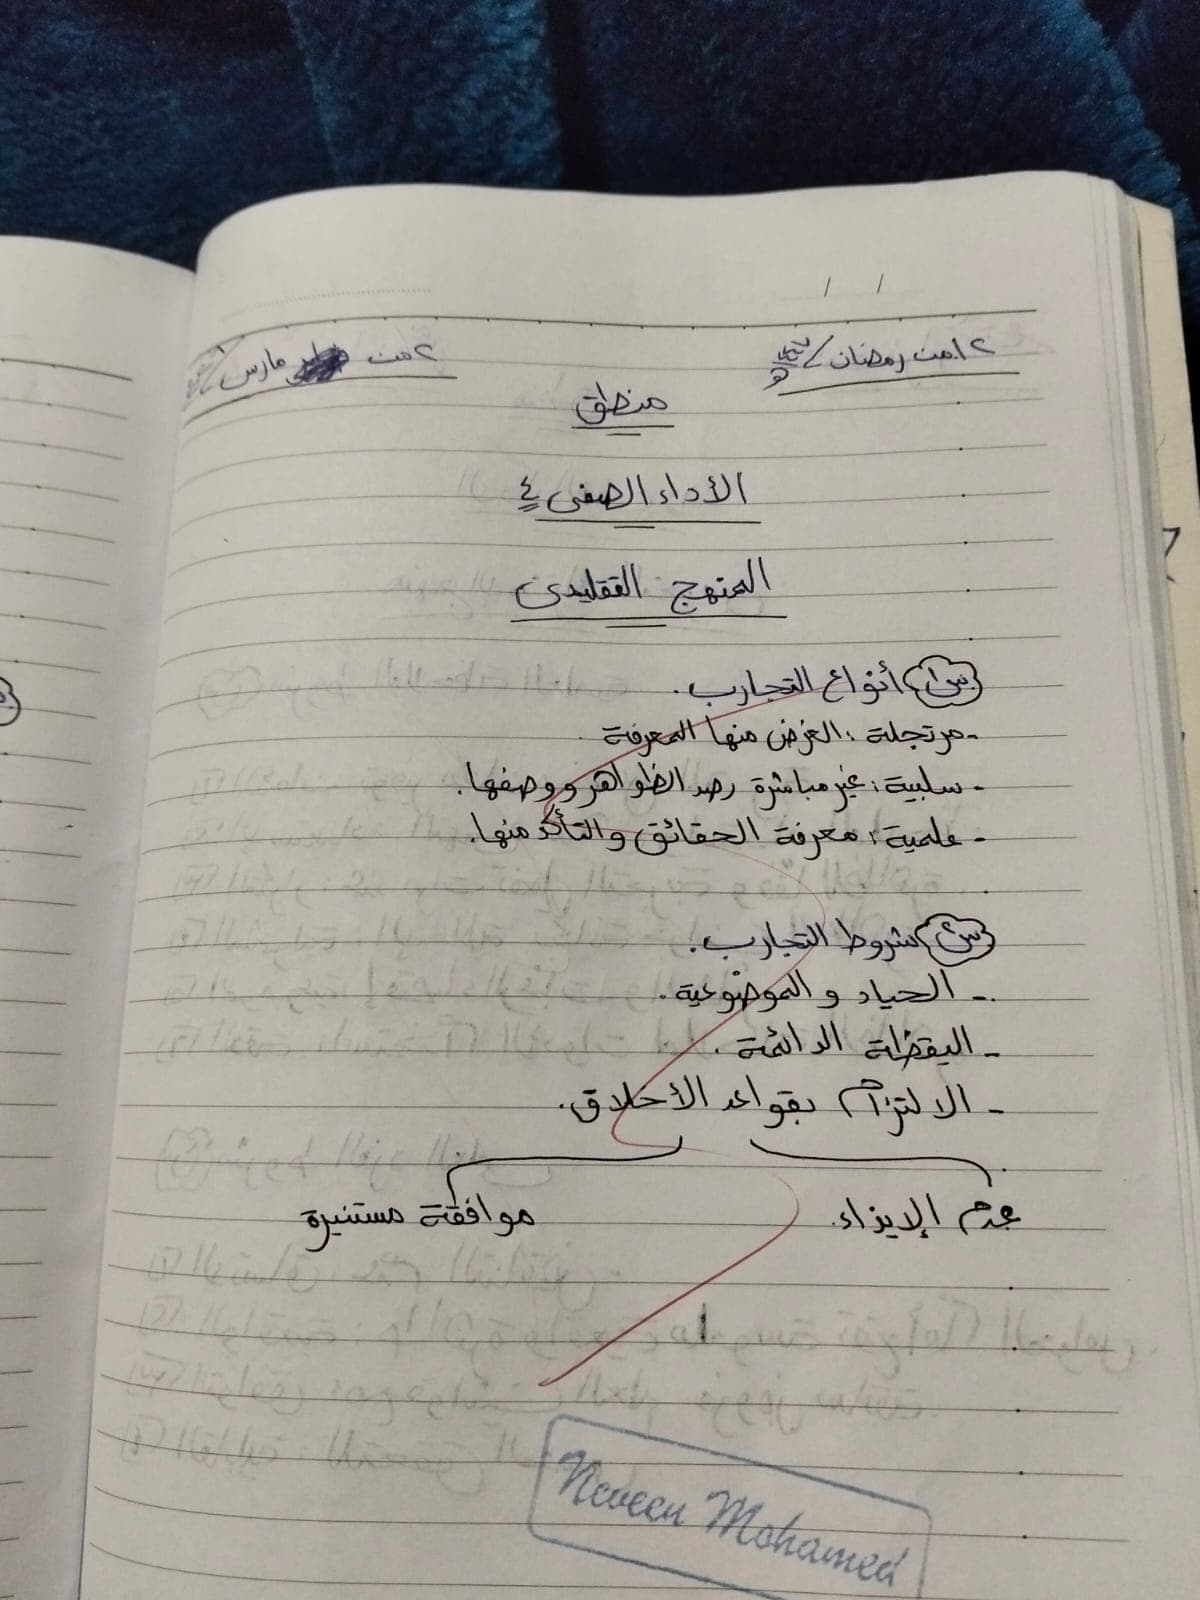 ١٢ من رمضان / هـ
٢ من مارس /
منطق
الأداء الصفى ٤
المنهج التقليدى
س١ أنواع التجارب.
- مرتجلة: الغرض منها المعرفة
- سلبية: غير مباشرة رصد الظواهر ووصفها.
- علمية: معرفة الحقائق والتأكد منها.
س٢ شروط التجارب.
- الحياد والموضوعية.
- اليقظة الدائمة.
- الالتزام بقواعد الأخلاق.
عدم الإيذاء. موافقة مستنيرة
Neveen Mohamed